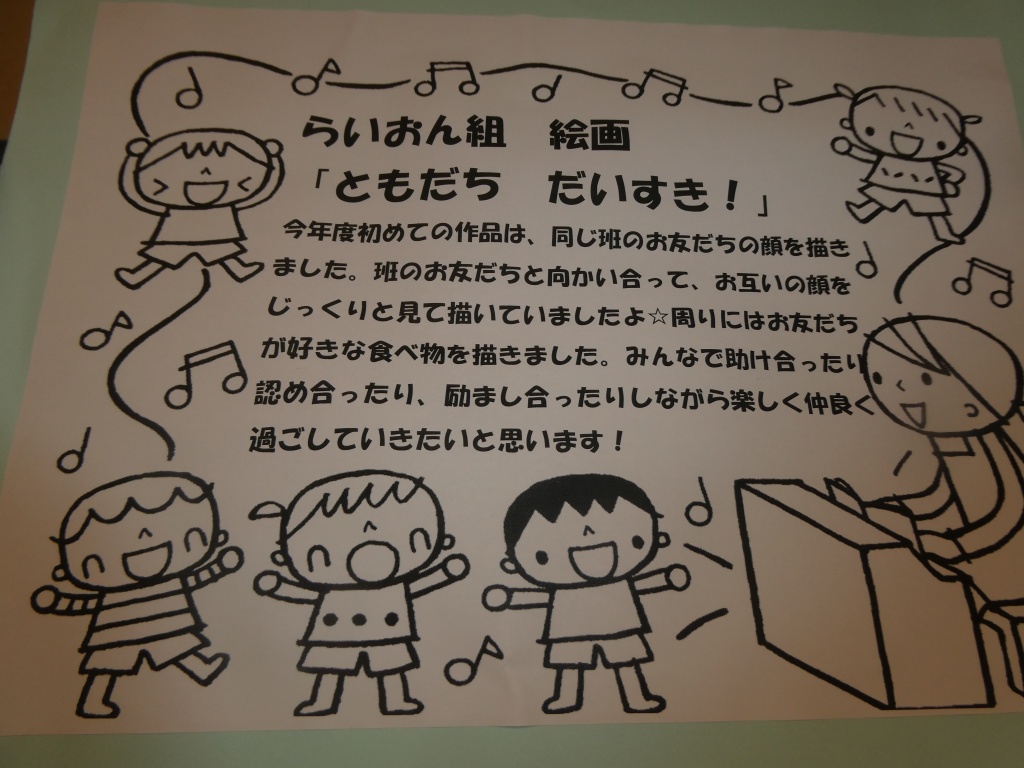 らいおん組　絵画
「ともだち　だいすき！」
今年度初めての作品は、同じ班のお友だちの顔を描き
ました。班のお友だちと向かい合って、お互いの顔を
じっくりと見て描いていましたよ☆周りにはお友だち
が好きな食べ物を描きました。みんなで助け合ったり
認め合ったり、励まし合ったりしながら楽しく仲良く
過ごしていきたいと思います！